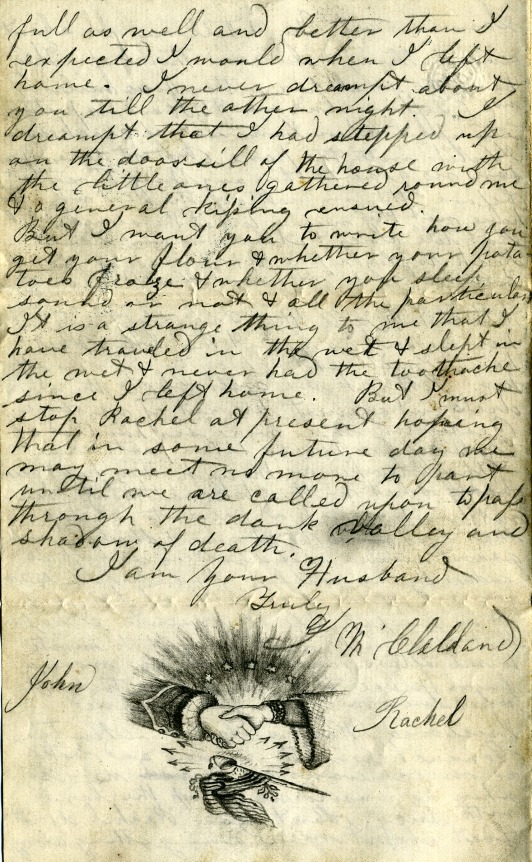 full as well and better than I
expected I would when I left
home. I never dreampt about
you till the other night. I
dreampt that I had stepped up
on the doorsill of the house with
the little ones gathered round me
& a general kissing ensued.
But I want you to write how you
get your flour & whether your pota
toes froze & whether you sleep
sound or not & all the particulars
It is a strange thing to me that I
have traveled in the wet & slept in
the wet & never had the toothache
since I left home. But I must
stop Rachel at present hopeing
that in some future day we
may meet no more to part
until we are called upon to pass
through the dark valley and
shadow of death.
I am your Husband
Truly
J.
John
Rachel